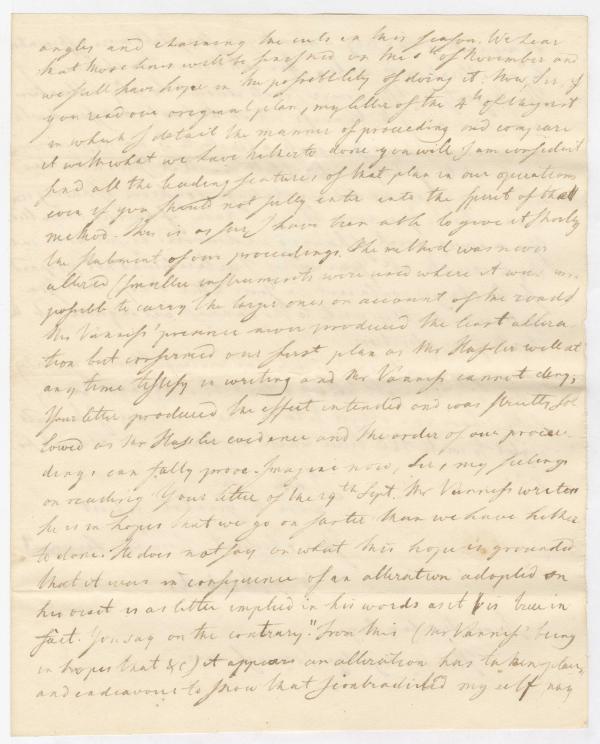 angles and chaining the cuts in this season. We hear
that those lines will be finished on the 6th of November and
we still have hope in the possibility of doing it. Now, Sir, if
you read our original plan, my letter of the 4th of August
in which I detail the manner of proceeding and compare
it with what we have hitherto done you will I am confident
find all the leading features of that plan in our operations
even if you should not fully enter into the spirit of the
method. This is as far I have been able to give it shortly
the statement of our proceedings. The method was never
altered smaller instruments were used where it was im-
possible to carry the larger ones on account of the roads
Mr Vanness' presence never produced the least altera-
tion but confirmed our first plan as Mr Hassler will at
any time testify in writing and Mr Vanness cannot deny;
Your letter produced the effect intended and was strictly fol
lowed as Mr Hassler evidence and the order of our procee-
dings can fully prove. Imagine now, Sir, my feelings
on reading Your letter of the 29th Sept. Mr Vanness writes
he is in hopes that we go on faster than we have hither
to done. He does not say on what this hope is grounded
that it was in consequence of an alteration adopted on
his visit is as little implied in his words as it is true in
fact. You say on the contrary: "From this (Mr Vanness' being
in hopes that &c) it appears an alteration has taken place,"
and endeavour to show that I contradicted my self nay